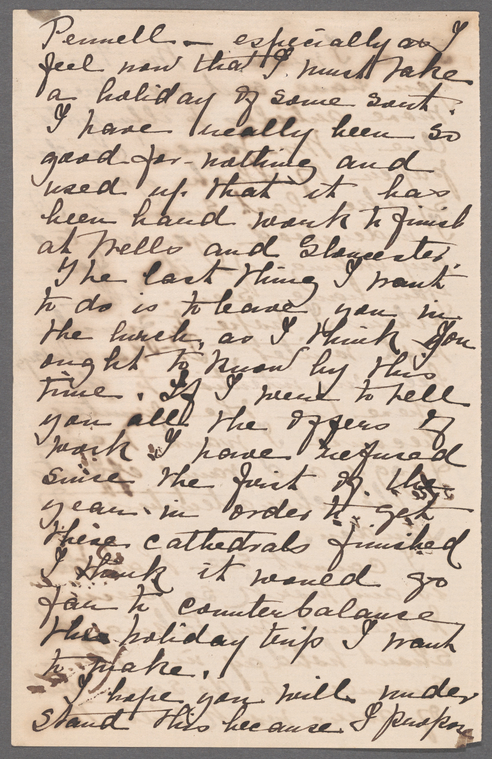 Pennell — especially as I
feel now that I must take
a holiday of some sort.
I have really been so
good-for-nothing and
used up that it has
been hard work to finish
at Wells and Gloucester.
The last thing I want
to do is to leave you in
the lurch, as I think you
ought to know by this
time. If I were to tell
you all the offers of
work I have refused
since the first of the
year in order to get
these cathedrals finished
I think it would go
far to counterbalance
this holiday trip I want
to make.
I hope you will under
stand this because I propose